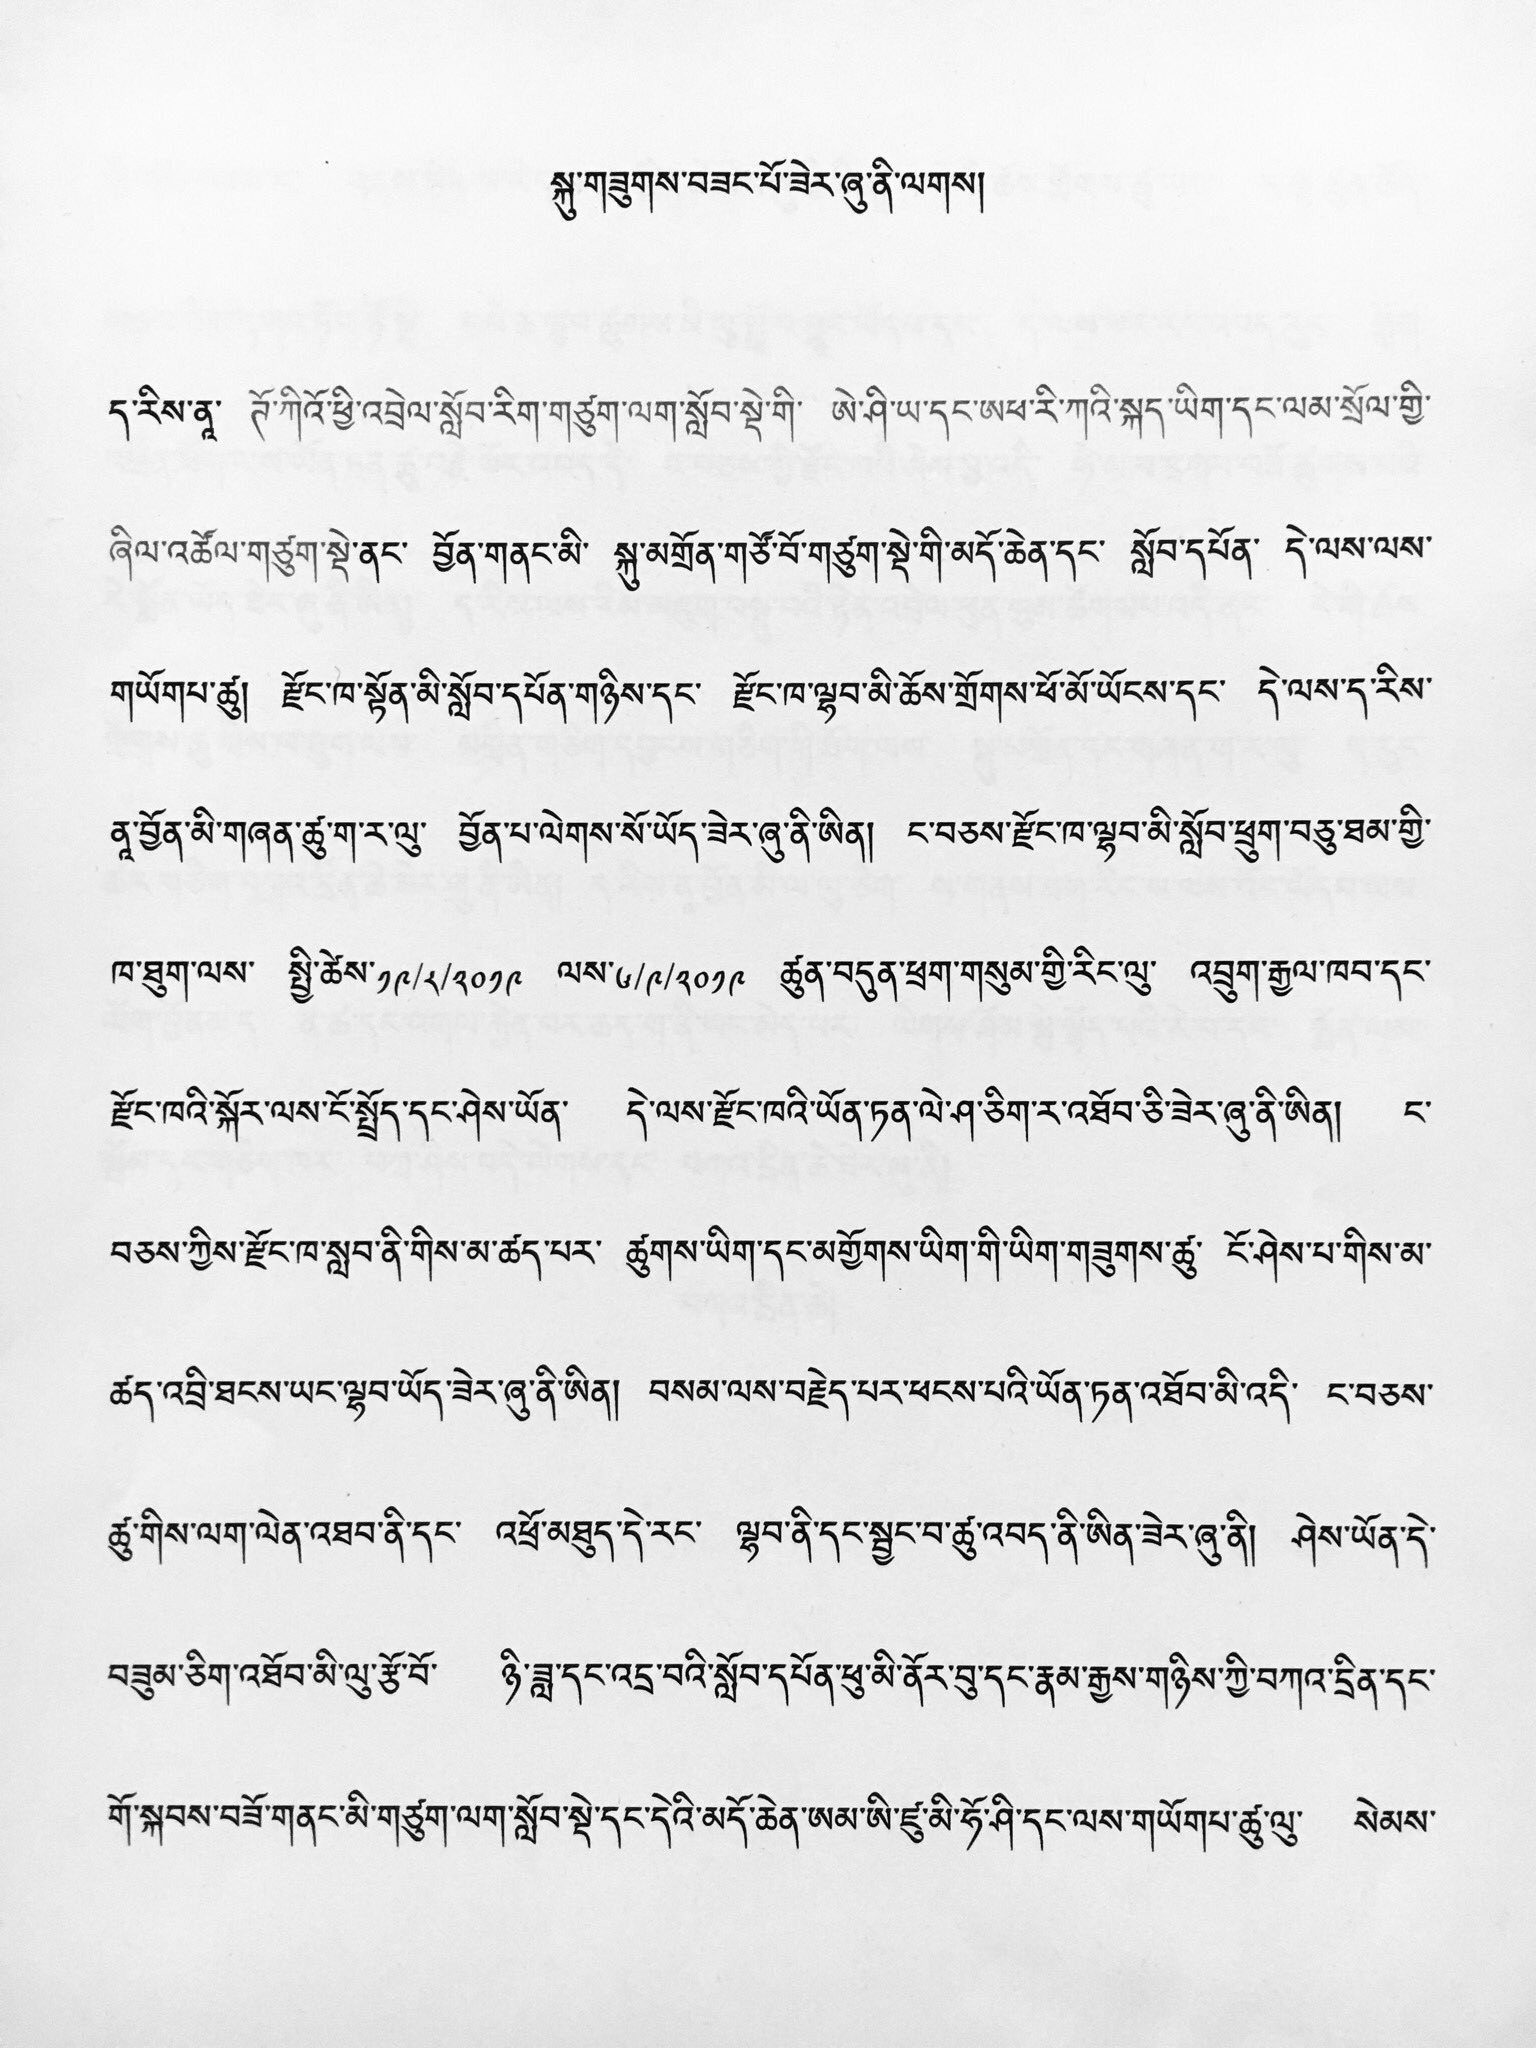 སྐུ་གཟུགས་བཟང་པོ་ཟེར་ཞུ་ནི་ལགས།
ད་རིས་ནཱ་ ཊོ་ཀིའོ་ཕྱི་འབྲེལ་སློབ་རིག་གཙུག་ལག་སློབ་སྡེ་གི་ ཨེ་ཤི་ཡ་དང་ཨཕ་རི་ཀའི་སྐད་ཡིག་དང་ལམ་སྲོལ་གྱི་
ཞིལ་འཚོལ་གཙུག་སྡེ་ནང་ བྱོན་གནང་མི་ སྐུ་མགྲོན་གཙོ་བོ་གཙུག་སྡེ་གི་མདོ་ཆེན་དང་ སློབ་དཔོན་ དེ་ལས་ལས་
གཡོགཔ་ཚུ། རྫོང་ཁ་སྟོན་མི་སློབ་དཔོན་གཉིས་དང་ རྫོང་ཁ་ལྷབ་མི་ཆོས་གྲོགས་ཕོ་མོ་ཡོངས་དང་ དེ་ལས་ད་རིས་
ནཱ་བྱོན་མི་གཞན་ཚུ་ག་ར་ལུ་ བྱོན་པ་ལེགས་སོ་ཡོད་ཟེར་ཞུ་ནི་ཨིན། ང་བཅས་རྫོང་ཁ་ལྷབ་མི་སློབ་ཕྲུག་བཅུ་ཐམ་གྱི་
ཁ་ཐུག་ལས་ སྤྱི་ཚེས་༡༩/༨/༢༠༡༩ ལས་༦/༩/༢༠༡༩ ཚུན་བདུན་ཕྲག་གསུམ་གྱི་རིང་ལུ་ འབྲུག་རྒྱལ་ཁབ་དང་
རྫོང་ཁའི་སྐོར་ལས་ངོ་སྤྲོད་དང་ཤེས་ཡོན་ དེ་ལས་རྫོང་ཁའི་ཡོན་ཏན་ལེ་ཤ་ཅིག་ར་འཐོབ་ཅི་ཟེར་ཞུ་ནི་ཨིན། ང་
བཅས་ཀྱིས་རྫོང་ཁ་སླབ་ནི་གིས་མ་ཚད་པར་ ཚུགས་ཡིག་དང་མགྱོགས་ཡིག་གི་ཡིག་གཟུགས་ཚུ་ ངོ་ཤེས་པ་གིས་མ་
ཚད་འབྲི་ཐངས་ཡང་ལྷབ་ཡོད་ཟེར་ཞུ་ནི་ཨིན། བསམ་ལས་བརྗེད་པར་ཕངས་པའི་ཡོན་ཏན་འཐོབ་མི་འདི་ ང་བཅས་
ཚུ་གིས་ལག་ལེན་འཐབ་ནི་དང་ འཕྲོ་མཐུད་དེ་རང་ ལྷབ་ནི་དང་སྦྱང་བ་ཚུ་འབད་ནི་ཨིན་ཟེར་ཞུ་ནི། ཤེས་ཡོན་དེ་
བཟུམ་ཅིག་འཐོབ་མི་ལུ་རྩོ་བོ་ ཉི་ཟླ་དང་འདྲ་བའི་སློབ་དཔོན་ཕུ་མི་ནོར་བུ་དང་རྣམ་རྒྱས་གཉིས་ཀྱི་བཀའ་དྲིན་དང་
གོ་སྐབས་བཟོ་གནང་མི་གཙུག་ལག་སློབ་སྡེ་དང་དེའི་མདོ་ཆེན་ཨམ་ཨི་ཛུ་མི་ཧོ་ཤི་དང་ལས་གཡོགཔ་ཚུ་ལུ་ སེམས་